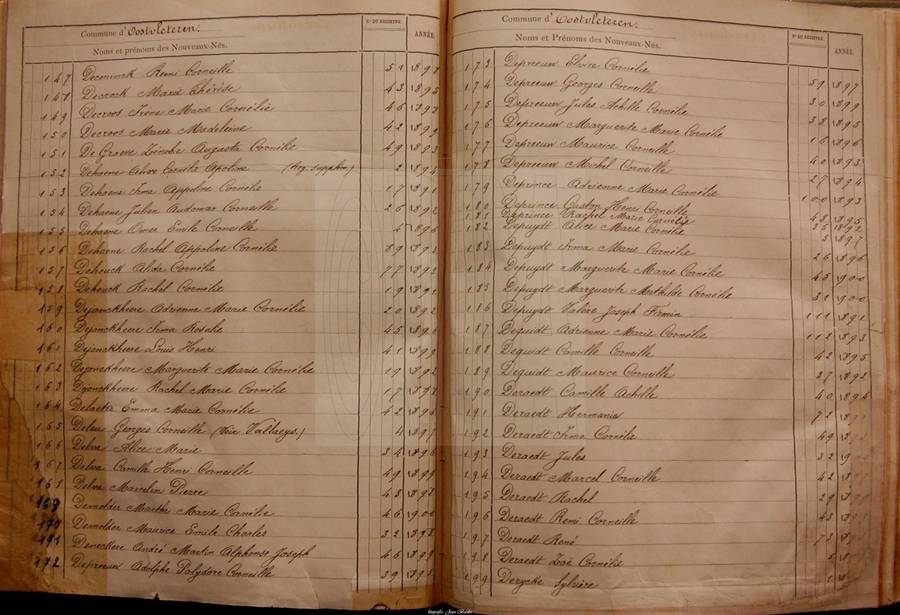 Commune d'Oostvleteren.
Noms et prénoms des Nouveaux-Nés.
Nº DU REGISTRE.
ANNÉE.
147 Decominck Remi Corneille 51 1897
148 Decrock Marie Thérèse 43 1895
149 Decroos Irène Marie Cornélie 46 1897
150 Decroos Marie Madeleine 42 1899
151 De Graeve Zénobie Augusta Cornélie 49 1893
152 Dehaene Alice Cornélie Apoline 2 1894
153 Dehaene Irma Appoline Cornélie 17 1891
154 Dehaene Julien Audomar Corneille 26 1892
155 Dehaene Omer Emile Corneille 5 1896
156 Dehaene Rachel Appoline Cornélie 39 1893
157 Dehouck Alida Cornélie 77 1893
158 Dehouck Rachel Cornélie 19 1891
159 Dejonckheere Adrienne Marie Cornélie 20 1892
160 Dejonckheere Irma Rosalie 45 1898
161 Dejonckheere Louis Henri 41 1899
162 Dejonckheere Marguerite Marie Cornélie 19 1892
163 Dejonckheere Rachel Marie Cornélie 17 1897
164 Delaeter Emma Marie Cornélie 42 1896
165 Deleu Georges Corneille (Voir Vallaeys.) 4 1897
166 Delva Alice Marie 34 1896
167 Delva Camille Henri Corneille 49 1898
168 Delva Marcelin Pierre 48 1897
169 Demolder Marthe Marie Cornélie 46 1900
170 Demolder Maurice Emile Charles 32 1893
171 Deneckere André Martin Alphonse Joseph 46 1899
172 Depreeuw Adolphe Polydore Corneille 39 1895
Commune d'Oostvleteren.
Noms et Prénoms des Nouveaux-Nés.
Nº DU REGISTRE.
ANNÉE.
173 Depreeuw Elvire Cornélie 59 1897
174 Depreeuw Georges Corneille 30 1899
175 Depreeuw Jules Achille Cornélie 38 1895
176 Depreeuw Marguerite Marie Cornélie 16 1896
177 Depreeuw Maurice Corneille 40 1893
178 Depreeuw Michel Corneille 27 1894
179 Deprince Adrienne Marie Cornélie 100 1893
180 Deprince Gaston Henri Corneille 48 1895
181 Deprince Rachel Marie Cornélie 35 1892
182 Depuydt Alice Marie Cornélie 5 1897
183 Depuydt Irma Marie Cornélie 26 1896
184 Depuydt Marguerite Marie Cornélie 45 1900
185 Depuydt Marguerite Mathilde Cornélie 31 1900
186 Depuydt Valère Joseph Firmin 111 1891
187 Dequidt Adrienne Marie Cornélie 112 1893
188 Dequidt Camille Corneille 42 1895
189 Dequidt Maurice Corneille 27 1892
190 Deraedt Camille Achille 40 1896
191 Deraedt Hermanie 72
192 Deraedt Irma Cornélie 49
193 Deraedt Jules 32
194 Deraedt Marcel Corneille 42
195 Deraedt Rachel 29
196 Deraedt Remi Corneille 43
197 Deraedt René 73
198 Deraedt Zoé Cornélie
199 Derycke Sylvière